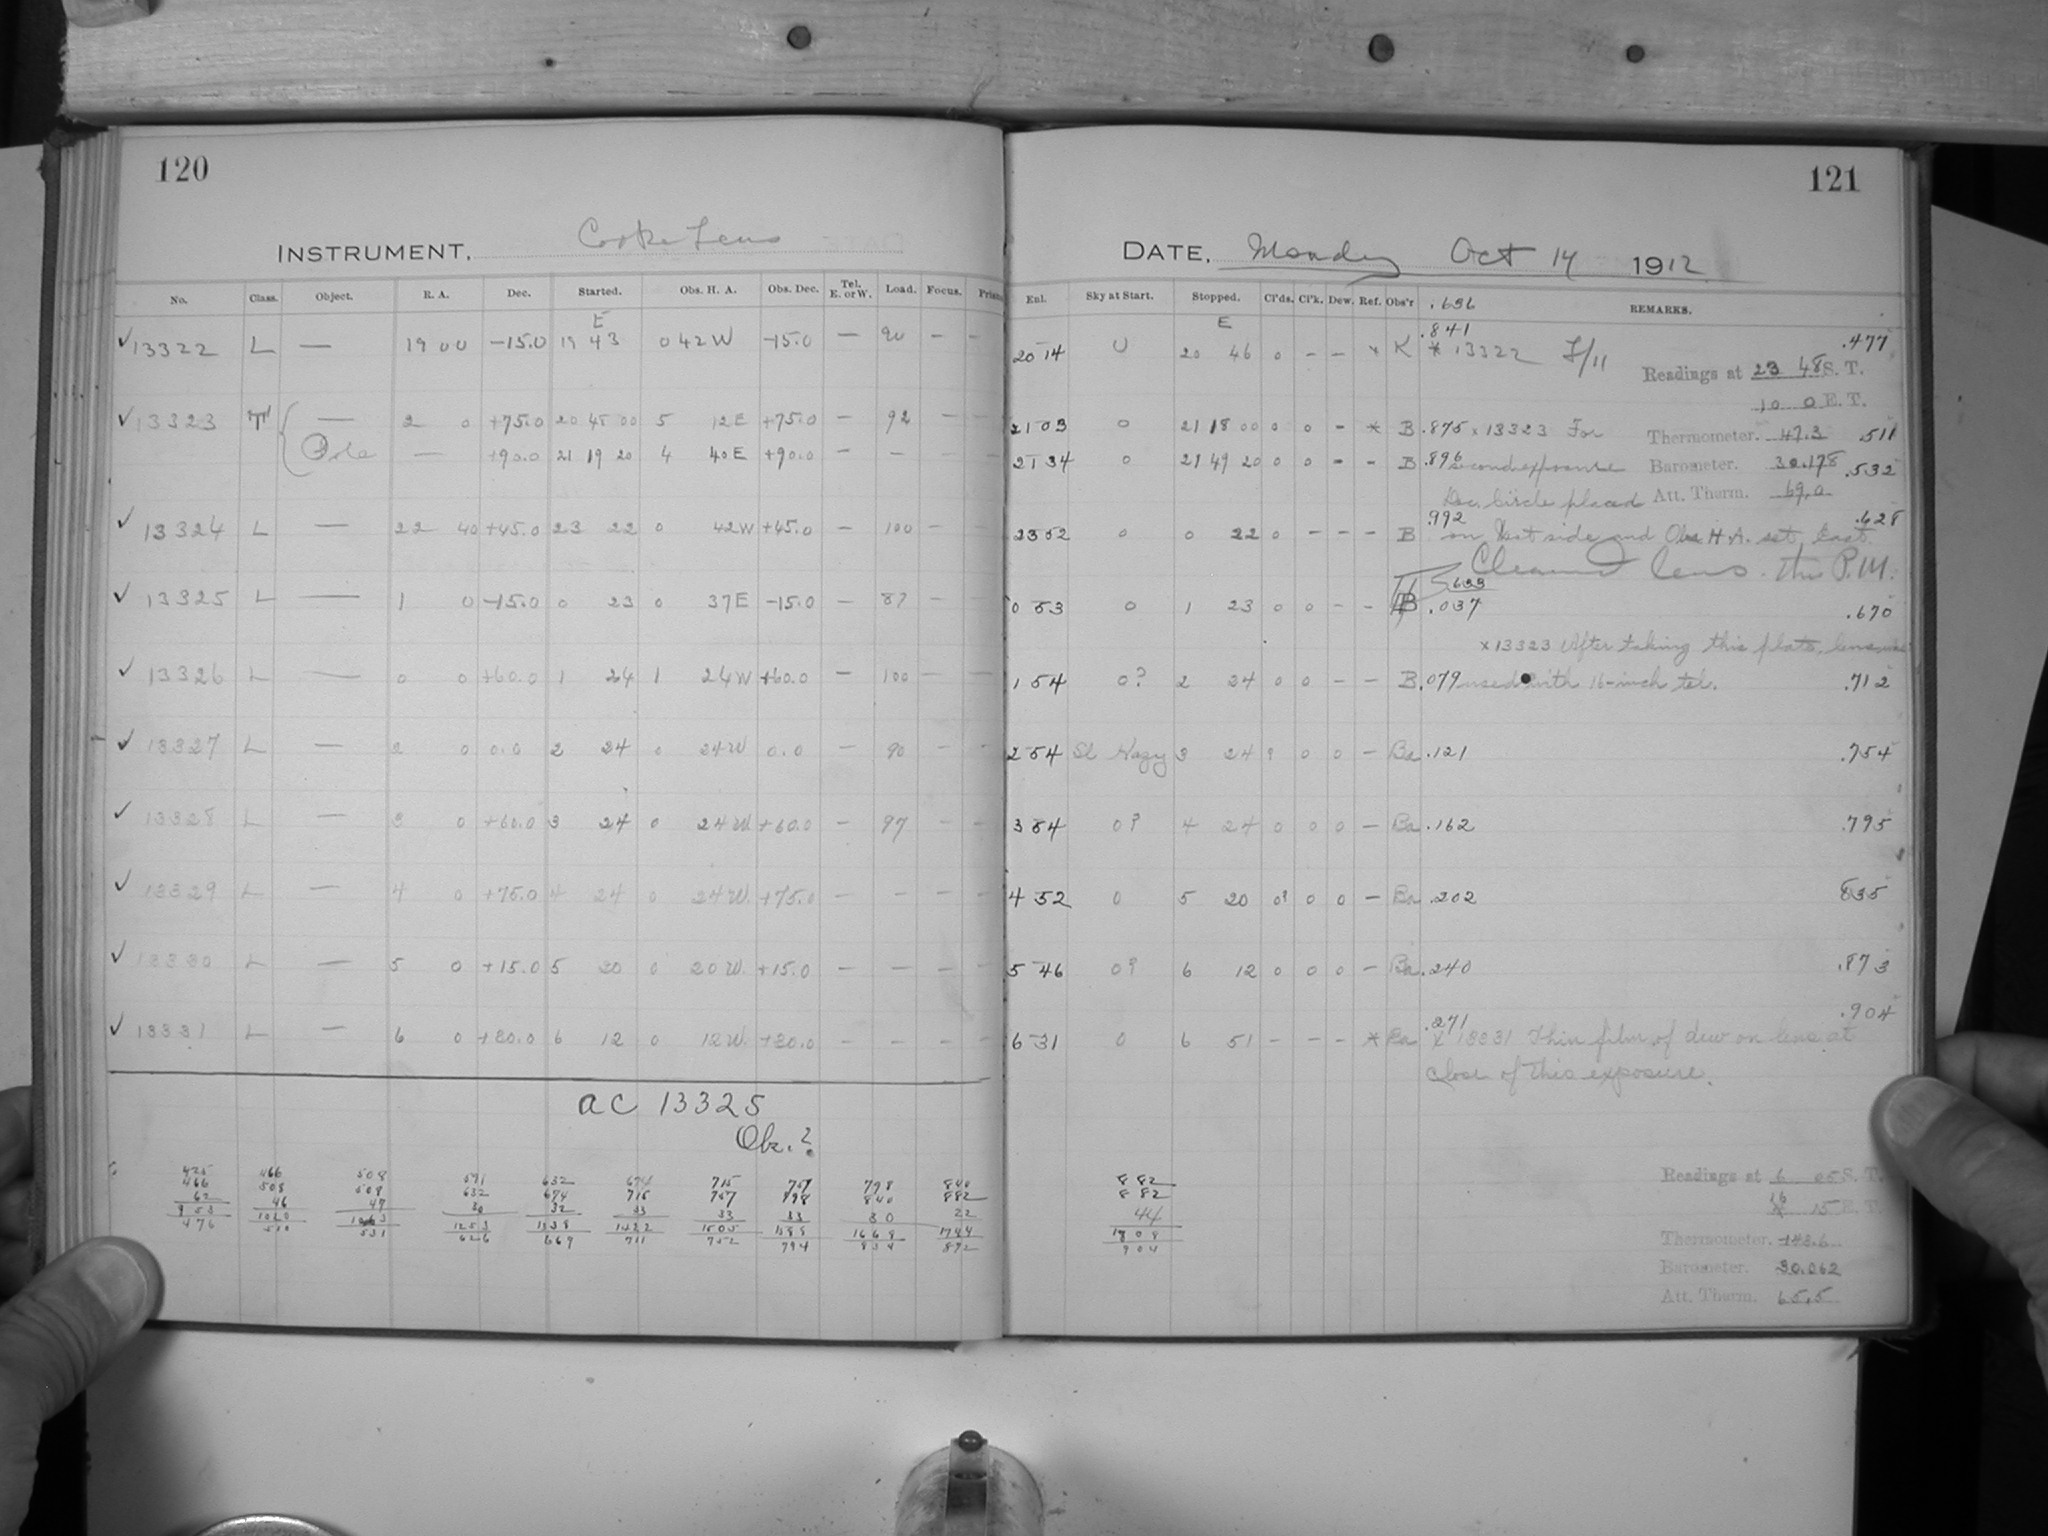 120
INSTRUMENT, Cooke Lens
No. Class. Object. R. A. Dec. Started. Obs. H. A. Obs. Dec. Tel. E. or W. Load. Focus.
E
✓ 13322 L — 19 00 -15.0 19 43 0 42 W -15.0 — 90 — —
✓ 13323 — 2 0 +75.0 20 48 00 5 12 E +75.0 — 92 — —
Pole — +90.0 21 19 20 4 40 E +90.0 — — — —
✓ 13324 L — 22 40 +45.0 23 22 0 42 W +45.0 — 100 — —
✓ 13325 L — 1 0 -15.0 0 23 0 37 E -15.0 — 87 — —
✓ 13326 L — 0 0 +60.0 1 24 1 24 W +60.0 — 100 — —
✓ 13327 L — 2 0 0.0 2 24 0 24 W 0.0 — 90 — —
✓ 13328 L — 3 0 +60.0 3 24 0 24 W +60.0 — 97 — —
✓ 13329 L — 4 0 +75.0 4 24 0 24 W. +75.0 — — — —
✓ 13330 L — 5 0 +15.0 5 20 0 20 W. +15.0 — — — —
✓ 13331 L — 6 0 +30.0 6 12 0 12 W. +30.0 — — — —
AC 13325
Ok.?
425 466 508 591 632 674 715 757 798 840
466 508 508 632 674 715 757 798 840 882
62 46 47 30 32 33 33 33 30 22
953 1020 1063 1253 1338 1422 1505 1588 1668 1744
476 510 531 626 669 711 752 794 834 872
121
DATE, Monday Oct 14 1912
Enl. Sky at Start. Stopped. Cl'ds. Cl'k. Dew. Ref. Obs'r .636 REMARKS.
E
.841
20 14 0 20 46 0 — — * K * 13322 F/11 .477
Readings at 23 48 S. T.
10 0 E. T.
21 03 0 21 18 00 0 0 — * B .875 x 13323 For Thermometer. 47.3 .511
21 34 0 21 49 20 0 0 — — B .896 second exposure Barometer. 30.178 .532
Dec. Circle placed Att. Therm. 69.0
.992 .628
23 52 0 0 22 0 — — — B on West side and Obs H.A. set East.
Cleaned lens this P.M.
.633
0 53 0 1 23 0 0 — — B .037 .670
x 13323 After taking this plate, lens was
1 54 0? 2 24 0 0 — — B .079 used with 16-inch tel. .712
2 54 Sl Hazy 3 24 ? 0 0 — Ba .121 .754
3 54 0? 4 24 0 0 0 — Ba .162 .795
4 52 0 5 20 0? 0 0 — Ba .202 835
5 46 0? 6 12 0 0 0 — Ba .240 .873
.271 .904
6 31 0 6 51 — — — * Ba x 13331 Thin film of dew on lens at
close of this exposure.
882
882
44
1808
904
Readings at 6 05 S. T.
16 15 E. T.
Thermometer. 43.6
Barometer. 30.062
Att. Therm. 65.5